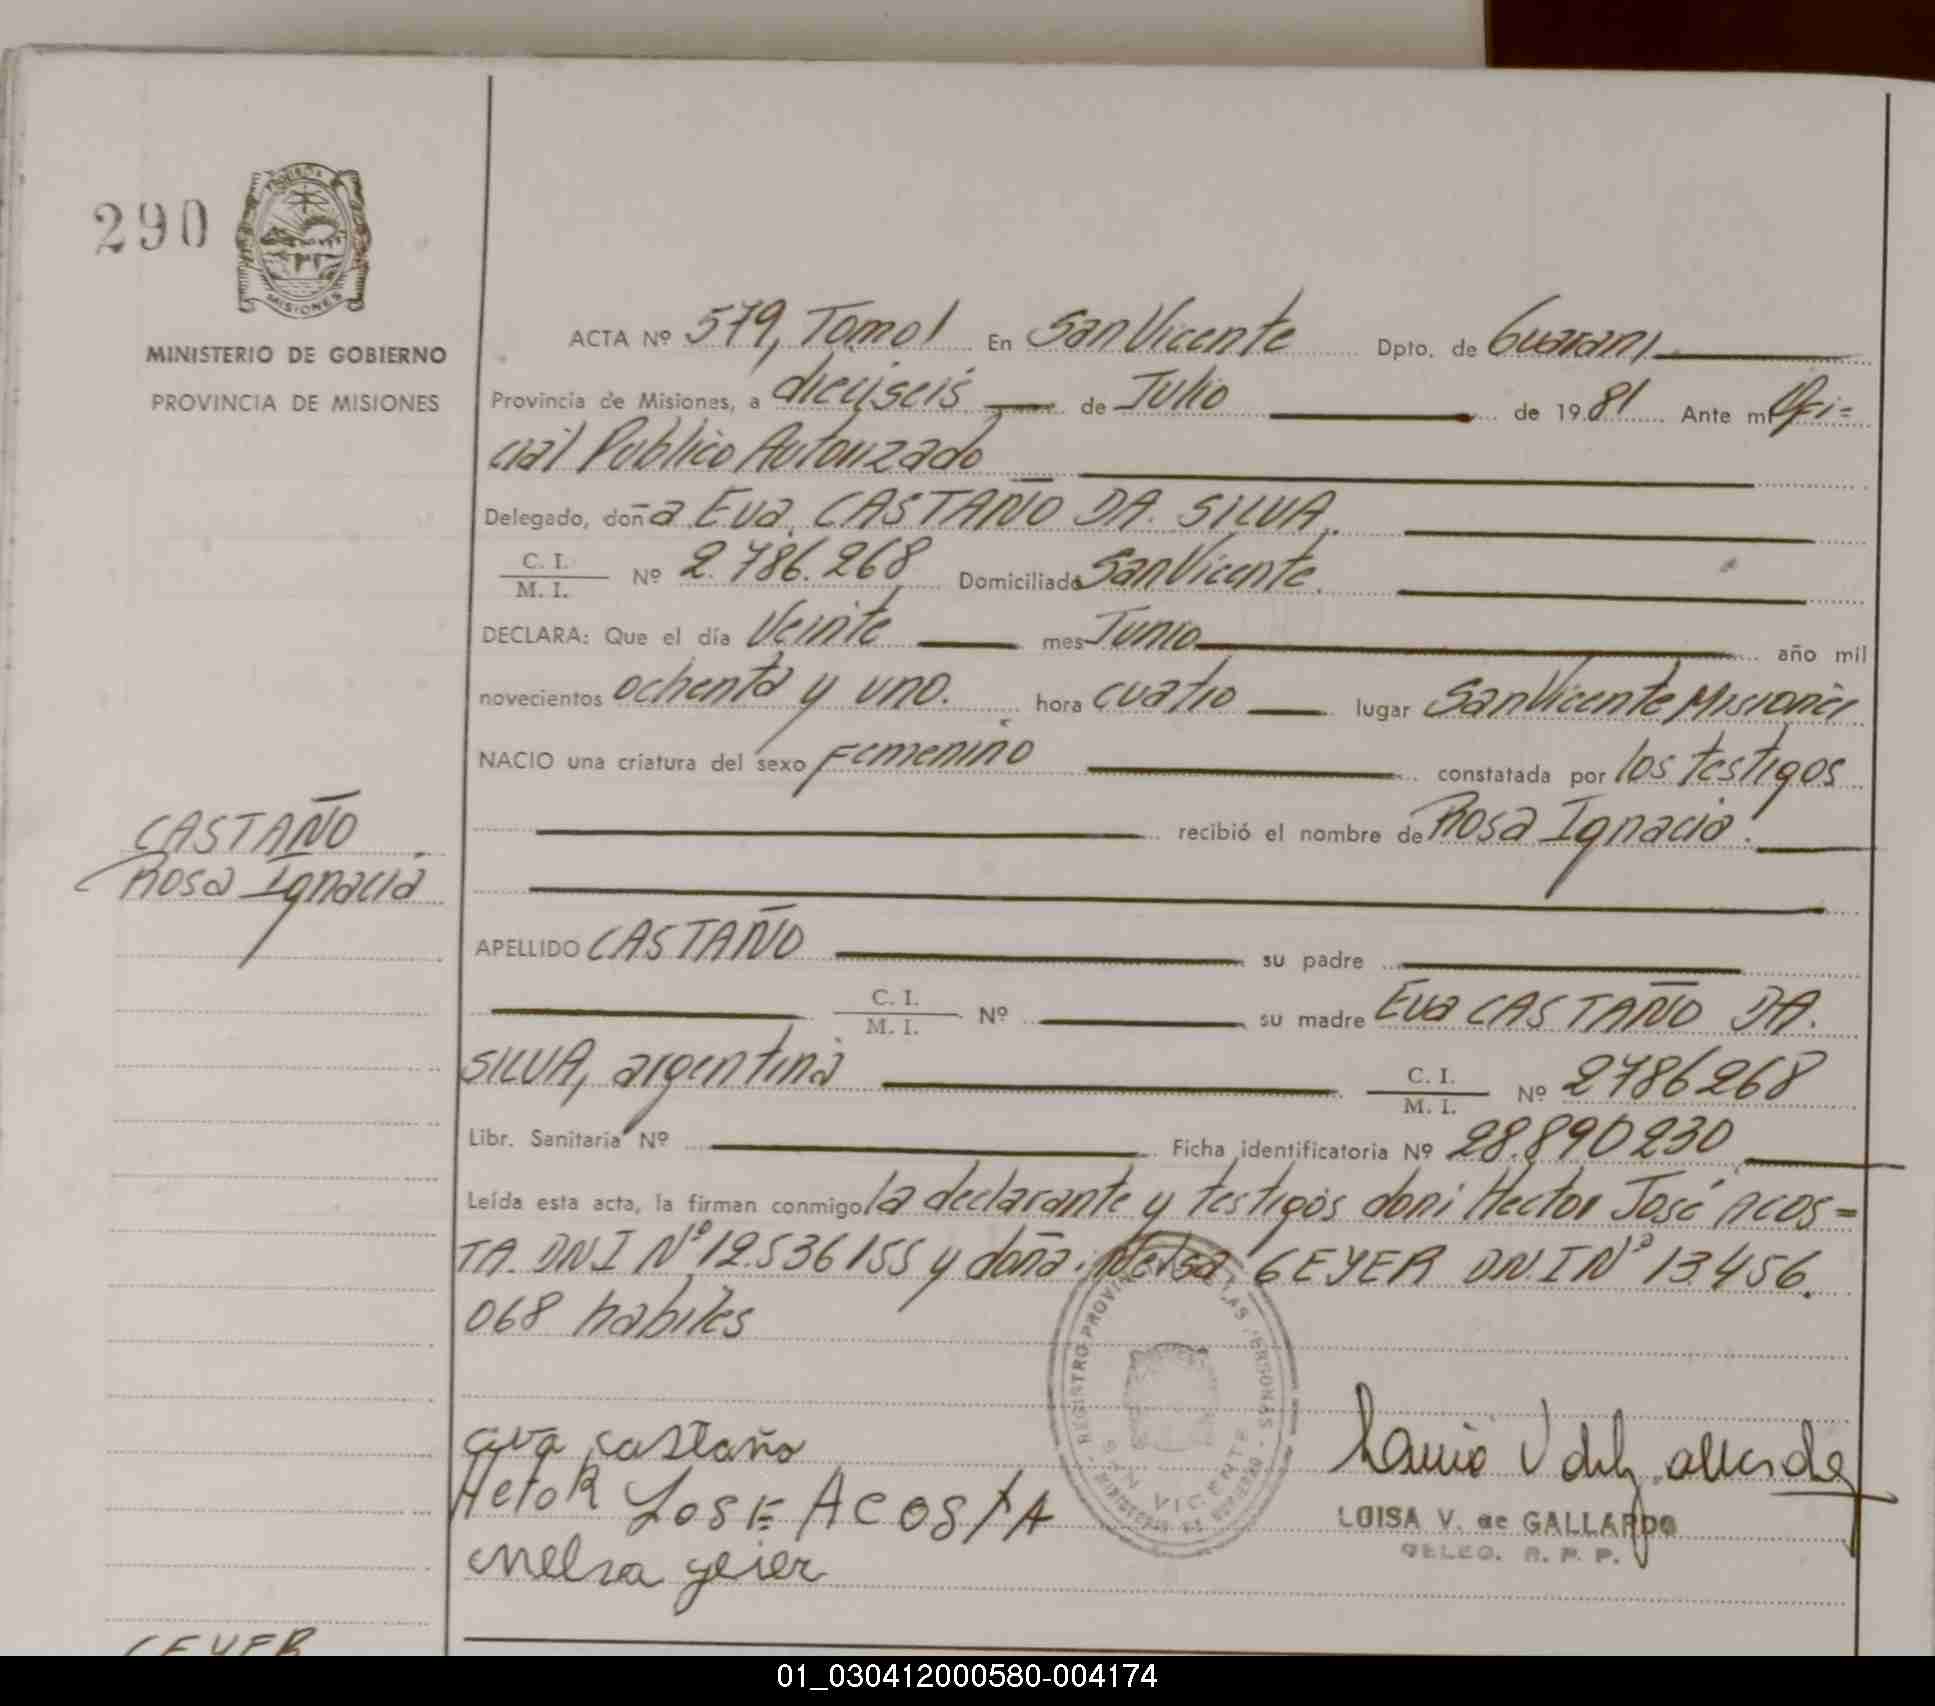 290
MISIONES
MINISTERIO DE GOBIERNO
PROVINCIA DE MISIONES
ACTA Nº 579, Tomo I En San Vicente Dpto. de Guaraní
Provincia de Misiones, a dieciseis de Julio de 1981 Ante mí Ofi=
cial Publico Autorizado
Delegado, doña Eva CASTAÑO DA. SILVA.
C. I.
M. I. Nº 2.786.268 Domiciliado San Vicente.
DECLARA: Que el día Veinte mes Junio año mil
novecientos ochenta y uno. hora cuatro lugar San Vicente Misiones
NACIO una criatura del sexo Femenino constatada por los testigos
recibió el nombre de Rosa Ignacia.
CASTAÑO
Rosa Ignacia
APELLIDO CASTAÑO su padre
C. I.
M. I. Nº su madre Eva CASTAÑO DA.
SILVA, argentina C. I.
M. I. Nº 2786268
Libr. Sanitaria Nº Ficha identificatoria Nº 28.890230
Leída esta acta, la firman conmigo la declarante y testigos don: Hector José ACOS=
TA. DNI Nº 12.536155 y doña: Nelsa GEYER DN.I Nº 13.456.
068 habiles
REGISTRO PROVIN LAS PERSONAS
SAN VICENTE
MINISTERIO DE GOBIERNO
eva castaño
Hetor JOSE ACOSTA
nelsa yeier
LUISA V. de GALLARDO
DELEG. R. P. P.
GEYER
01_030412000580-004174